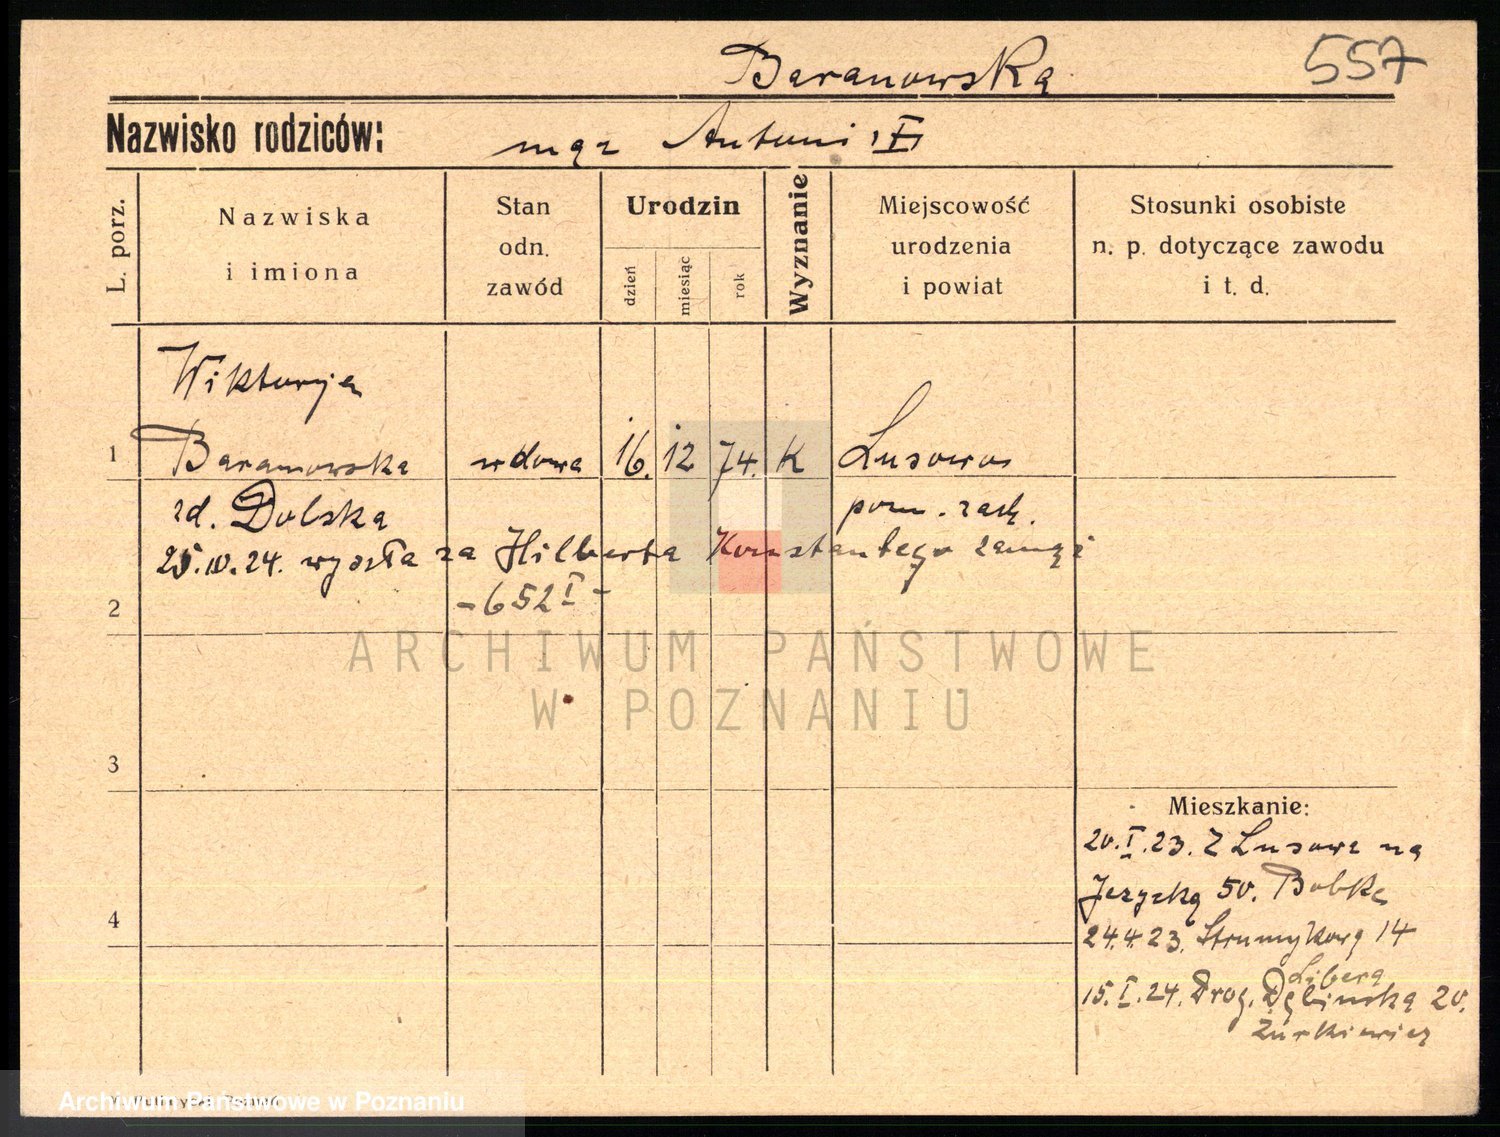 Baranowska
557
Nazwisko rodziców: mąż Antoni
L. porz.
Nazwiska
i imiona
Stan
odn.
zawód
Urodzin
dzień
miesiąc
rok
Wyznanie
Miejscowość
urodzenia
i powiat
Stosunki osobiste
n. p. dotyczące zawodu
i t. d.
Wiktorja
1 Baranowska wdowa 16. 12 74. K Lusowo
zd. Dolska pozn. zach.
25.IV.24. wyszła za Hilberta Konstantego zamąż
- 652 I -
2
3
4
Mieszkanie:
20.I.23. Z Lusowa na
Jeżycką 50. Bobke
24.4.23. Strumykową 14
Libera
15.I.24. Drog. Dębinską 20.
Żurkiewicz
ARCHIWUM PAŃSTWOWE
W POZNANIU
Archiwum Państwowe w Poznaniu